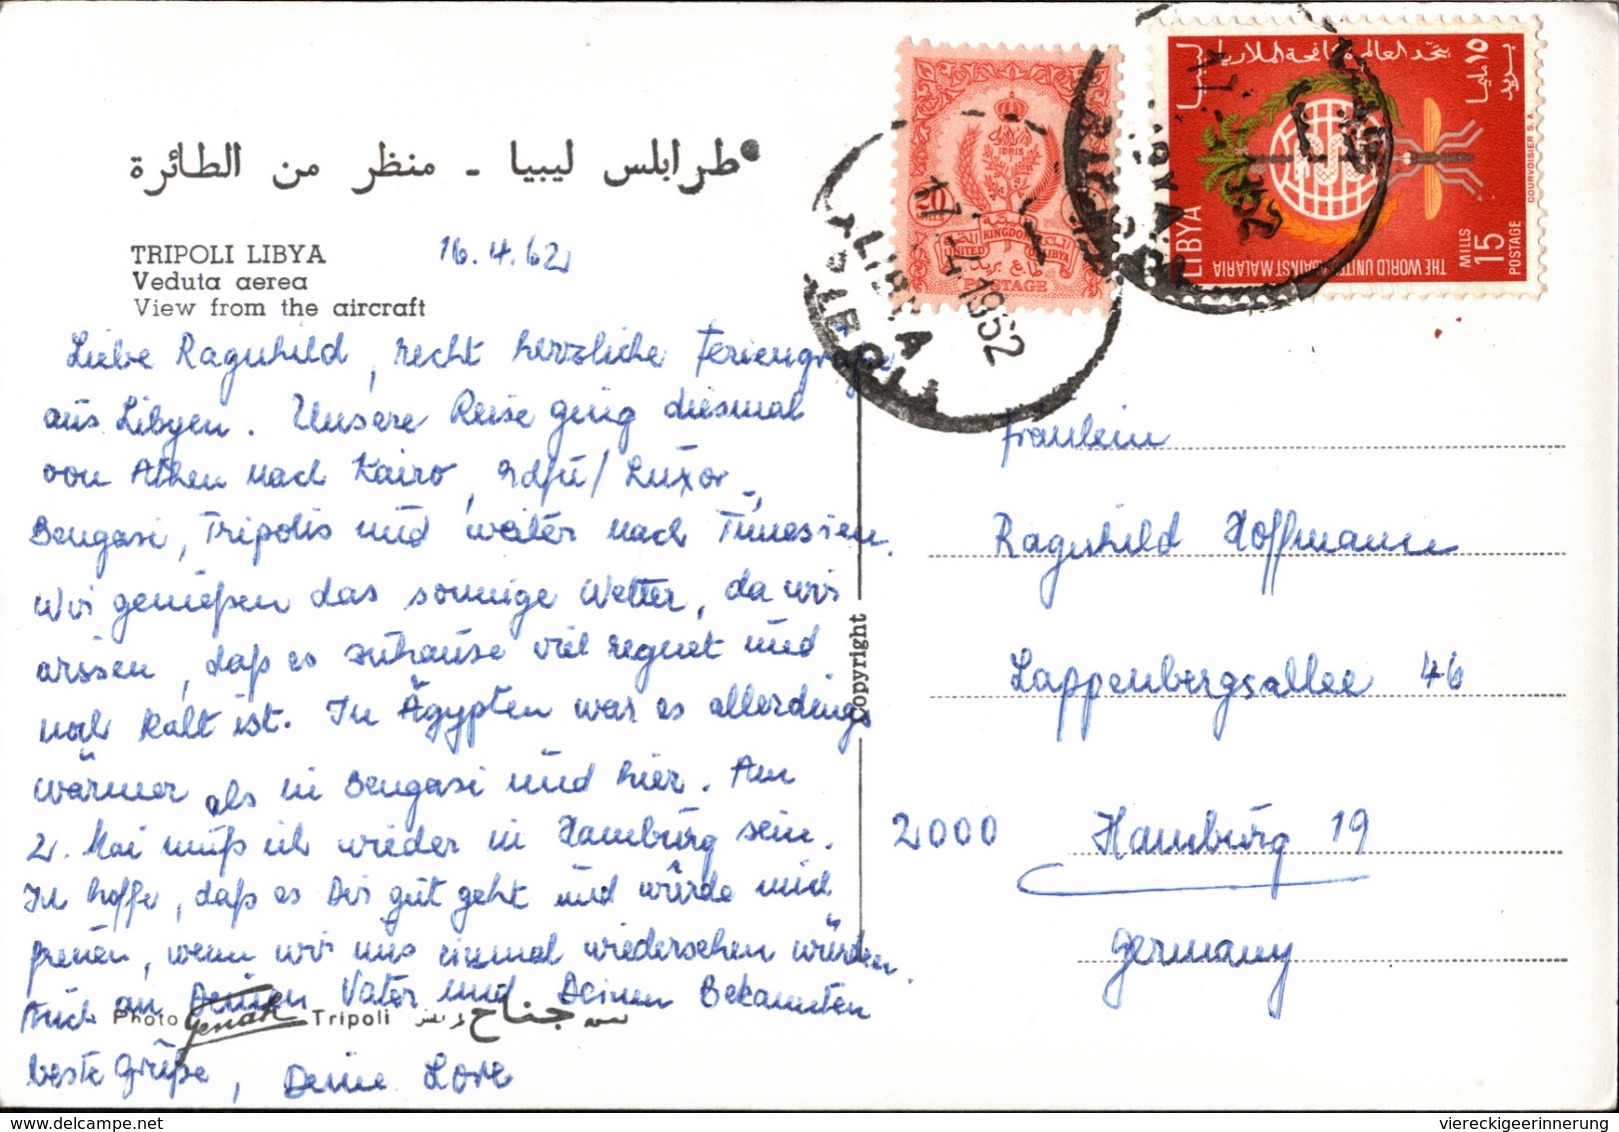 طرابلس ليبيا - منظر من الطائرة
TRIPOLI LIBYA
Veduta aerea
View from the aircraft
16.4.62
Liebe Ragnhild, recht herzliche Feriengrüße
aus Libyen. Unsere Reise ging diesmal
von Athen nach Kairo, Edfu/Luxor,
Bengasi, Tripolis und weiter nach Tunesien.
Wir genießen das sonnige Wetter, da wir
wissen, daß es zuhause viel regnet und
noch kalt ist. In Ägypten war es allerdings
wärmer als in Bengasi und hier. Am
2. Mai muß ich wieder in Hamburg sein.
Ich hoffe, daß es Dir gut geht und würde mich
freuen, wenn wir uns einmal wiedersehen würden.
Auch an Deinen Vater und Deinen Bekannten
beste Grüße, Deine Lore
Photo Tripoli جناح
Copyright
Fräulein
Ragnhild Hoffmann
Lappenbergsallee 46
2000 Hamburg 19
Germany
IDRIS
20
UNITED KINGDOM OF LIBYA
طابع بريد
POSTAGE
LIBYA
TRIPOLI
17-4-1962
ليبيا
يتحد العالم لمكافحة الملاريا
١٥ مليما
بريد
LIBYA
THE WORLD UNITED AGAINST MALARIA
MILLS
15
POSTAGE
COURVOISIER S.A.
viereckigeerinnerung